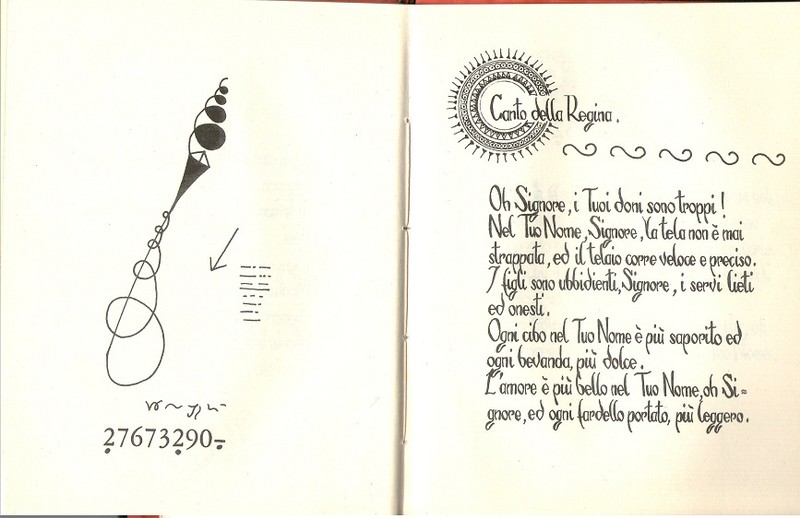 27673290-
Canto della Regina.
Oh Signore, i Tuoi doni sono troppi!
Nel Tuo Nome, Signore, la tela non è mai
strappata, ed il telaio corre veloce e preciso.
I figli sono ubbidienti, Signore, i servi lieti
ed onesti.
Ogni cibo nel Tuo Nome è più saporito ed
ogni bevanda, più dolce.
L'amore è più bello nel Tuo Nome, oh Si=
gnore, ed ogni fardello portato, più leggero.